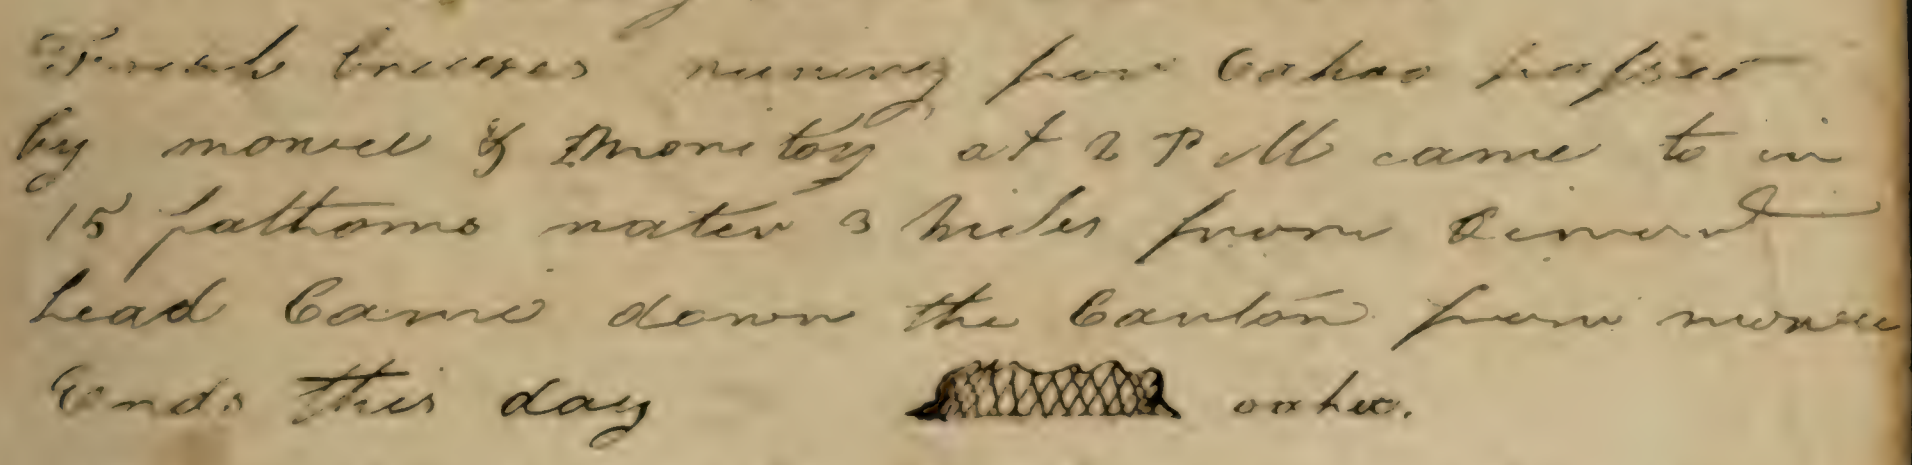 Fresh breezes runing for oahuo passed
by mowee & Moritoy at 2 P M came to in
15 fathoms water 3 Miles from Dimond
head Came down the Canton from mowee
Ends this day oahuo.